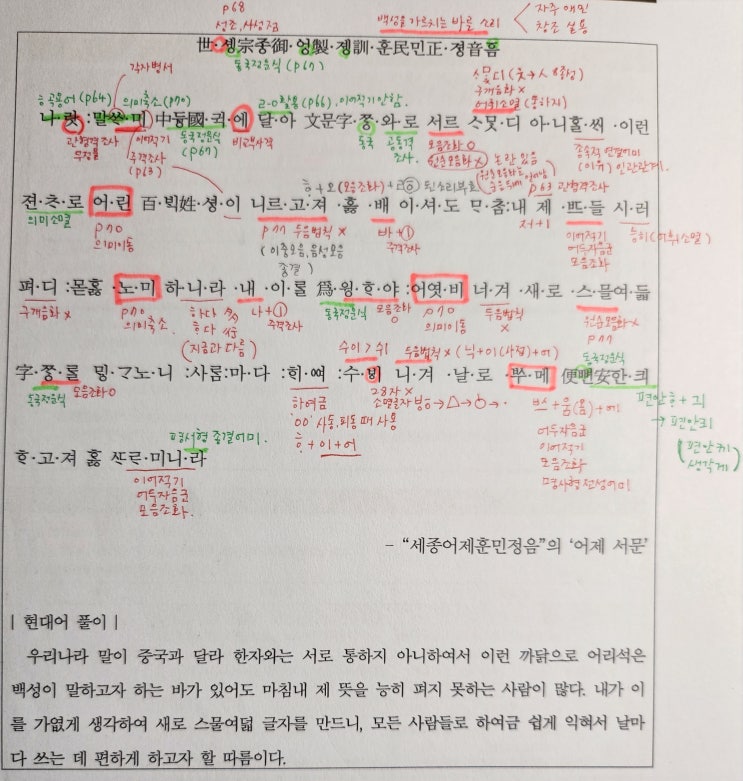 p68
성조, 사성점
백성을 가르치는 바른 소리
자주 애민
창조 실용
世·솅宗종御·엉製·졩訓·훈民민正·졍音흠
동국정운식 (p67)
각자병서
ㅎ곡용어 (p64)
의미축소 (p70)
ㄹㅇ활용 (p66). 이어적기안함.
구개음화 ×
어휘소멸 (통하지)
나·랏:말ᄊᆞ·미 中듕國·귁·에 달·아 文문字·ᄍᆞᆼ·와·로 서르 ᄉᆞᄆᆞᆺ·디 아·니ᄒᆞᆯ·ᄊᆡ ·이런
관형격조사
이어적기
주격조사
(p63)
동국정운식
(p67)
비교부사격
동국
공동격
조사.
모음조화 O
원순모음화 ×
논란 있음
종속적 연결어미
(이유) 인과관계.
p63 관형격조사
젼·ᄎᆞ·로 어·린 百·ᄇᆡᆨ姓·셩·이 니르·고·져 ·호ᇙ ·배 이·셔·도 ᄆᆞ·ᄎᆞᆷ:내 제 ·ᄠᅳ·들 시·러
의미소멸
p70
의미이동
p71 두음법칙 ×
바+ㅣ
주격조사
저+ㅣ
이어적기
어두자음군
모음조화
능히 (어휘소멸)
펴·디 :몯ᄒᆞᇙ ·노·미 하·니·라 ·내 ·이·ᄅᆞᆯ 爲·윙·ᄒᆞ·야 :어엿·비 너·겨 ·새·로 ·스·믈여·듧
구개음화 ×
p70
의미축소.
하다 多
ᄒᆞ다 爲
(지금과 다름)
나+ㅣ
주격조사
동국정운식
모음조화
O
p70
의미이동
두음법칙
×
원순모음화 ×
p71
수이 > 쉬
두음법칙 ×
동국정운식
字·ᄍᆞᆼ·ᄅᆞᆯ ᄆᆡᇰ·ᄀᆞ노·니 :사ᄅᆞᆷ:마·다 :ᄒᆡ·ᅇᅧ :수·ᄫᅵ 니·겨 ·날·로 ·ᄡᅮ·메 便뼌安ᅙᅡᆫ·킈
동국정운식
모음조화 O
하여금
'ㆀ' 사동, 피동 때 사용
ㅎ+이+어
28자 ×
어두자음군
이어적기
모음조화
명사형 전성어미
편안ㅎ + 긔
→ 편안킈
(편안케
생각게)
평서형 종결어미.
ᄒᆞ·고·져 ᄒᆞᇙ ᄯᆞᄅᆞ·미니·라
이어적기
어두자음군
모음조화.
– “세종어제훈민정음”의 ‘어제 서문’
| 현대어 풀이 |
우리나라 말이 중국과 달라 한자와는 서로 통하지 아니하여서 이런 까닭으로 어리석은
백성이 말하고자 하는 바가 있어도 마침내 제 뜻을 능히 펴지 못하는 사람이 많다. 내가 이
를 가엾게 생각하여 새로 스물여덟 글자를 만드니, 모든 사람들로 하여금 쉽게 익혀서 날마
다 쓰는 데 편하게 하고자 할 따름이다.